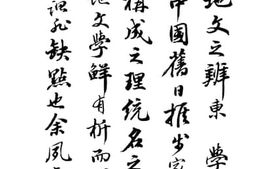 學
地文之辨東
中國舊日推步家
構成之理統名之
地文學鮮有析而
非缺點也余夙